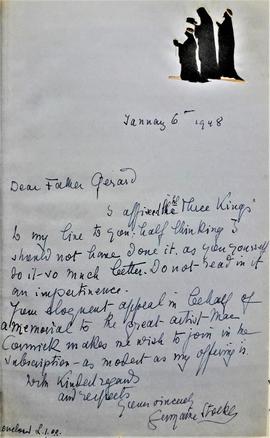 January 6th 1948
Dear Father Gerard
I affixed the Three Kings
to my line to you: half thinking I
should not have done it. as you yourself
do it so much better. Do not read in it
an impertinence.
Your eloquent appeal in behalf of
a memorial to the great artist Mac
Cormick makes me wish to join in the
subscription - as modest as my offering is.
With kindest regards
and respects
Yours sincerely
Germaine Stockley
enclosed £.1.00.